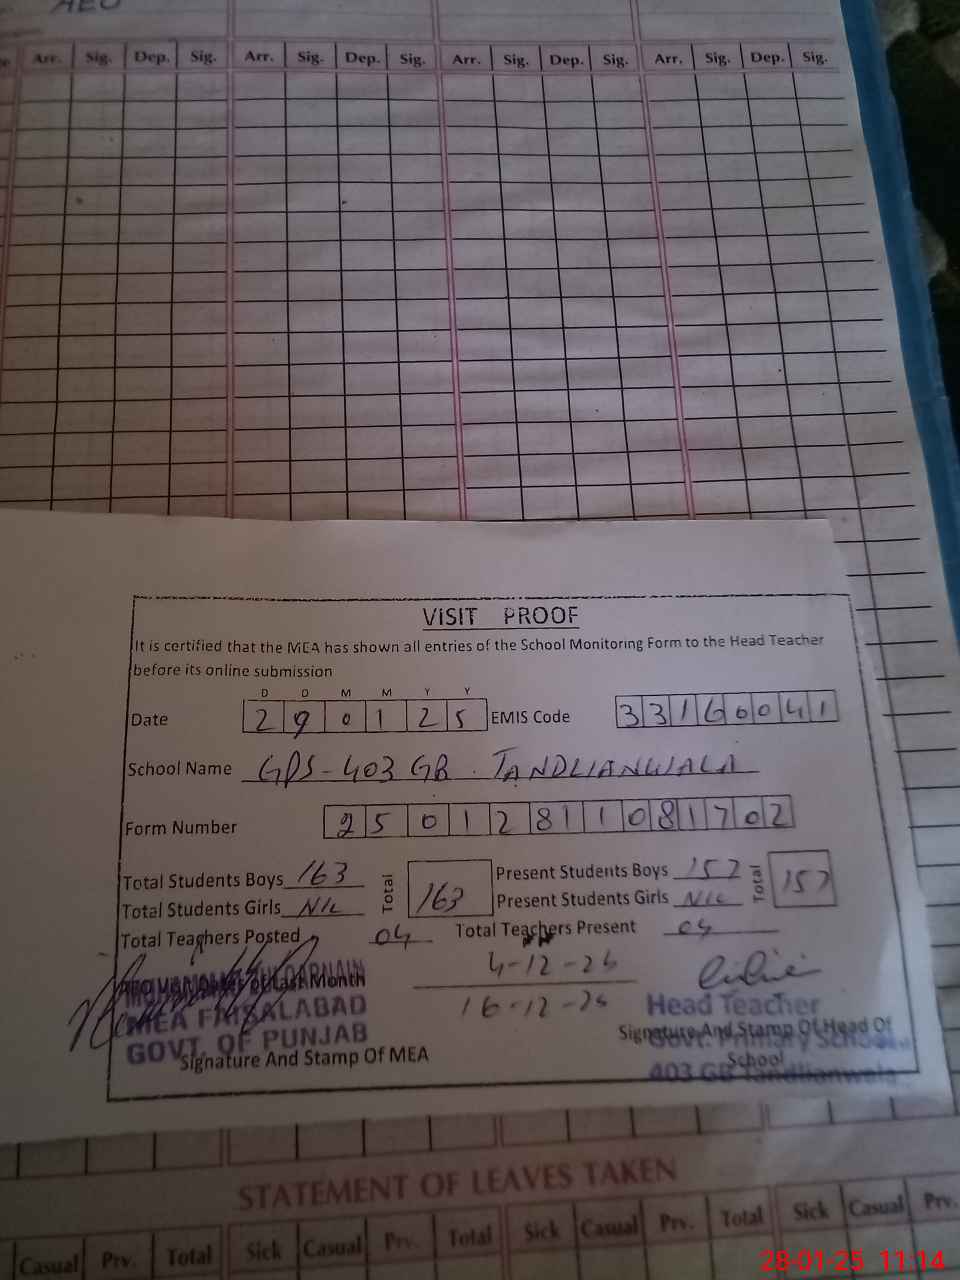 AEO
Arr. Sig. Dep. Sig. Arr. Sig. Dep. Sig. Arr. Sig. Dep. Sig. Arr. Sig. Dep. Sig.
VISIT PROOF
It is certified that the MEA has shown all entries of the School Monitoring Form to the Head Teacher
before its online submission
D D M M Y Y
Date 2 9 0 1 2 5 EMIS Code 3 3 1 6 0 0 4 1
School Name GPS-403 GB. TANDLIANWALA
Form Number 2 5 0 1 2 8 1 1 0 8 1 7 0 2
Total Students Boys 163 Total 163 Present Students Boys 157 Total 157
Total Students Girls NIL Present Students Girls NIL
Total Teachers Posted 04 Total Teachers Present 04
4-12-24
Last Month
16-12-24
MEA FAISALABAD
GOVT. OF PUNJAB
Signature And Stamp Of MEA
Head Teacher
Signature And Stamp Of Head Of
Govt. Primary School
School
403 GB Tandlianwala
STATEMENT OF LEAVES TAKEN
Casual Prv. Total Sick Casual Prv. Total Sick Casual Prv. Total Sick Casual Prv.
28-01-25 11:14